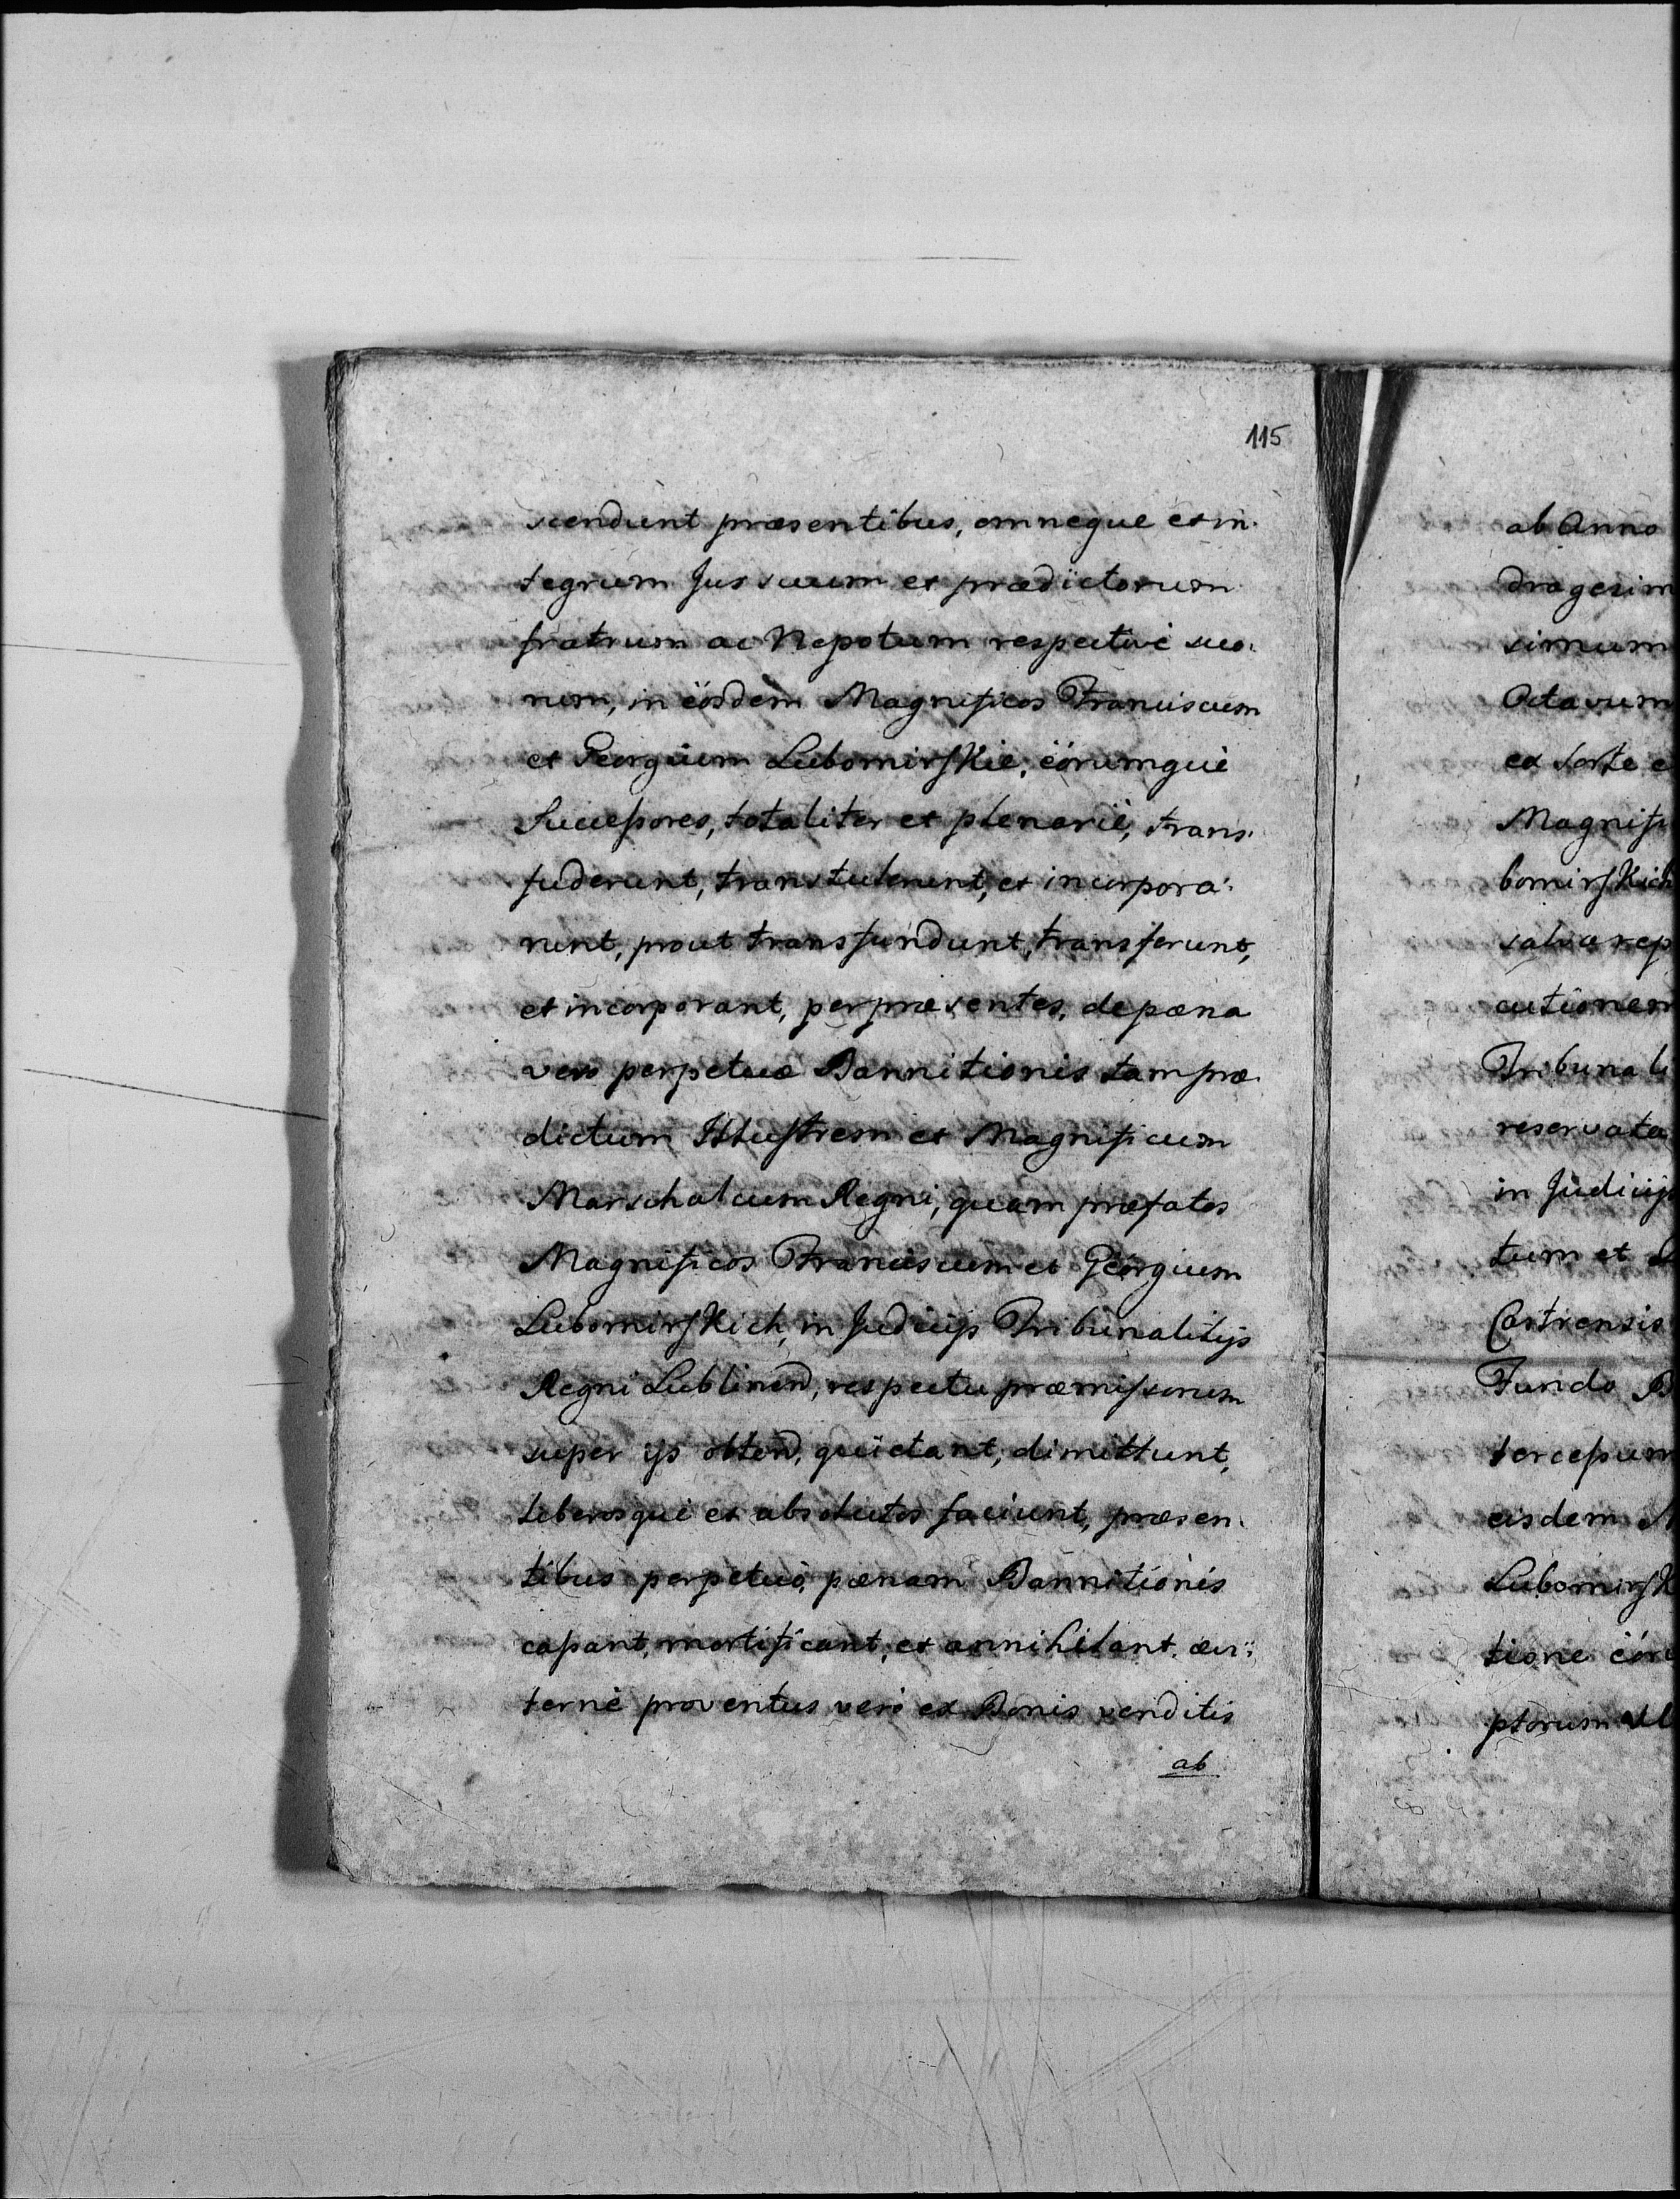 115
scendunt præsentibus, omneque et in-
tegrum Jus suum et prædictorum
fratrum ac Nepotum respective suo-
rum, in eosdem Magnificos Franciscum
et Georgium Lubomirskie, eorumque
Successores, totaliter et plenarie, trans-
fuderunt, transtulerunt, et incorpora-
runt, prout transfundunt, transferunt,
et incorporant, per præsentes, de pæna
vero perpetuæ Bannitionis tam præ-
dictum Illustrem et Magnificum
Marschalcum Regni, quam præfatos
Magnificos Franciscum et Georgium
Lubomirskich, in Judicijs Tribunalitijs
Regni Lublinen, respectu præmissorum
super ijs obten, quietant, dimittunt,
liberosque et absolutos faciunt, præsen-
tibus perpetuo, pænam Bannitionis
cassant, mortificant, et annihilant ævi-
terne proventus vero ex Bonis venditis
ab
ab Anno
dragesim
simum
Octavum
ex sorte e
Magnifi
bomirskich
salva rep
cutionem
Tribunali
reservata
in Judicijs
tum et
Castrensis
Fundo
terceſsum
eisdem M
Lubomirsk
tione eoru
ptorum